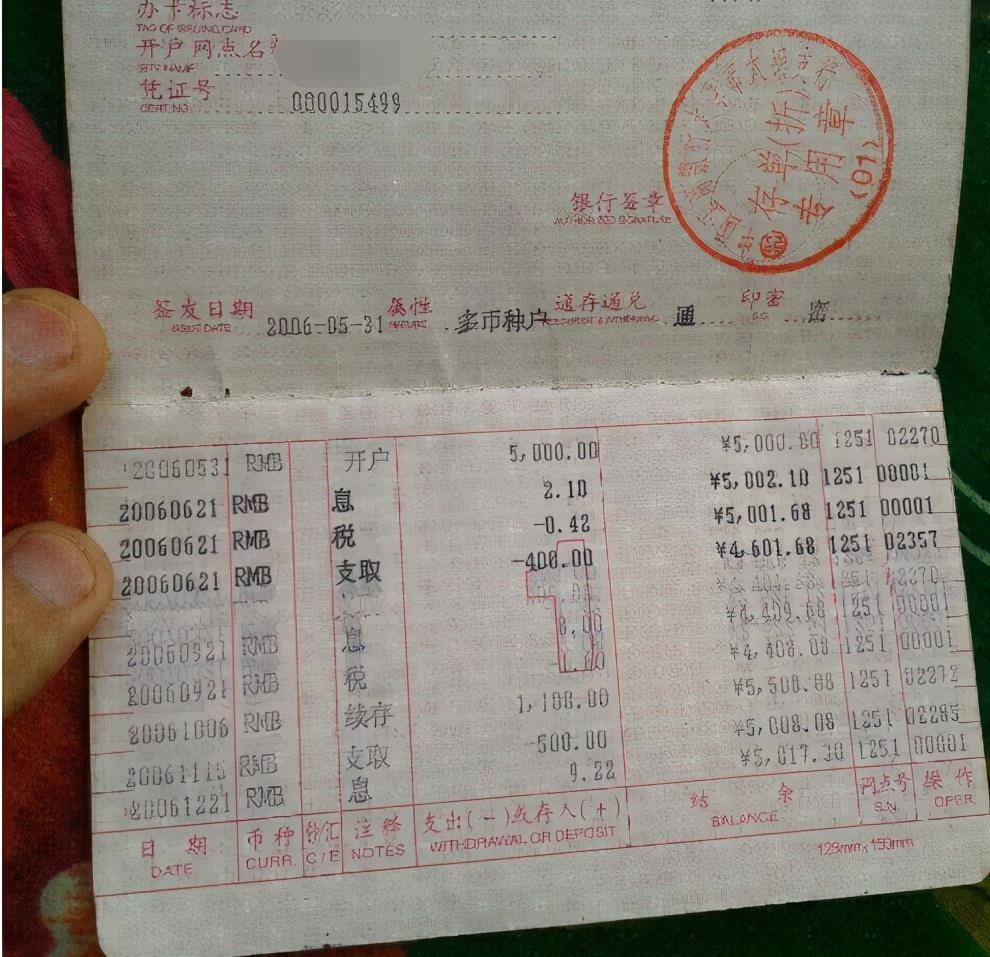 办卡标志
TAG OF ISSUING CARD
开户网点名
凭证号 000015499
存单(折)
专用章
(01)
银行签章
签发日期 2006-05-31 属性 多币种户 通存通兑 通 印密 密
ISSUE DATE
20060531 RMB 开户 5,000.00 ¥5,000.00 1251 02270
20060621 RMB 息 2.10 ¥5,002.10 1251 00001
20060621 RMB 税 -0.42 ¥5,001.68 1251 00001
20060621 RMB 支取 -400.00 ¥4,601.68 1251 02357
02270
20060921 RMB 息 8.00 1251 00001
20060921 RMB 税 ¥4,408.08 1251 00001
20061006 RMB 续存 1,100.00 ¥5,508.08 1251 02272
20061115 RMB 支取 -500.00 ¥5,008.08 1251 02285
20061221 RMB 息 9.22 ¥5,017.30 1251 00001
日期 币种 钞/汇 注释 支出(-)或存入(+) 结余 网点号 操作
DATE CURR. C/E NOTES WITHDRAWAL OR DEPOSIT BALANCE S.N. OPER